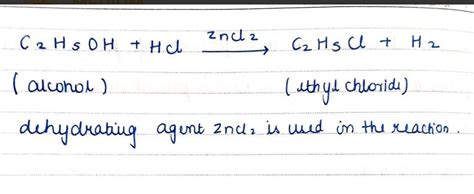 C2H5OH + HCl ZnCl2⟶ C2H5Cl + H2
(alcohol) (ethyl chloride)
dehydrating agent ZnCl2 is used in the reaction.